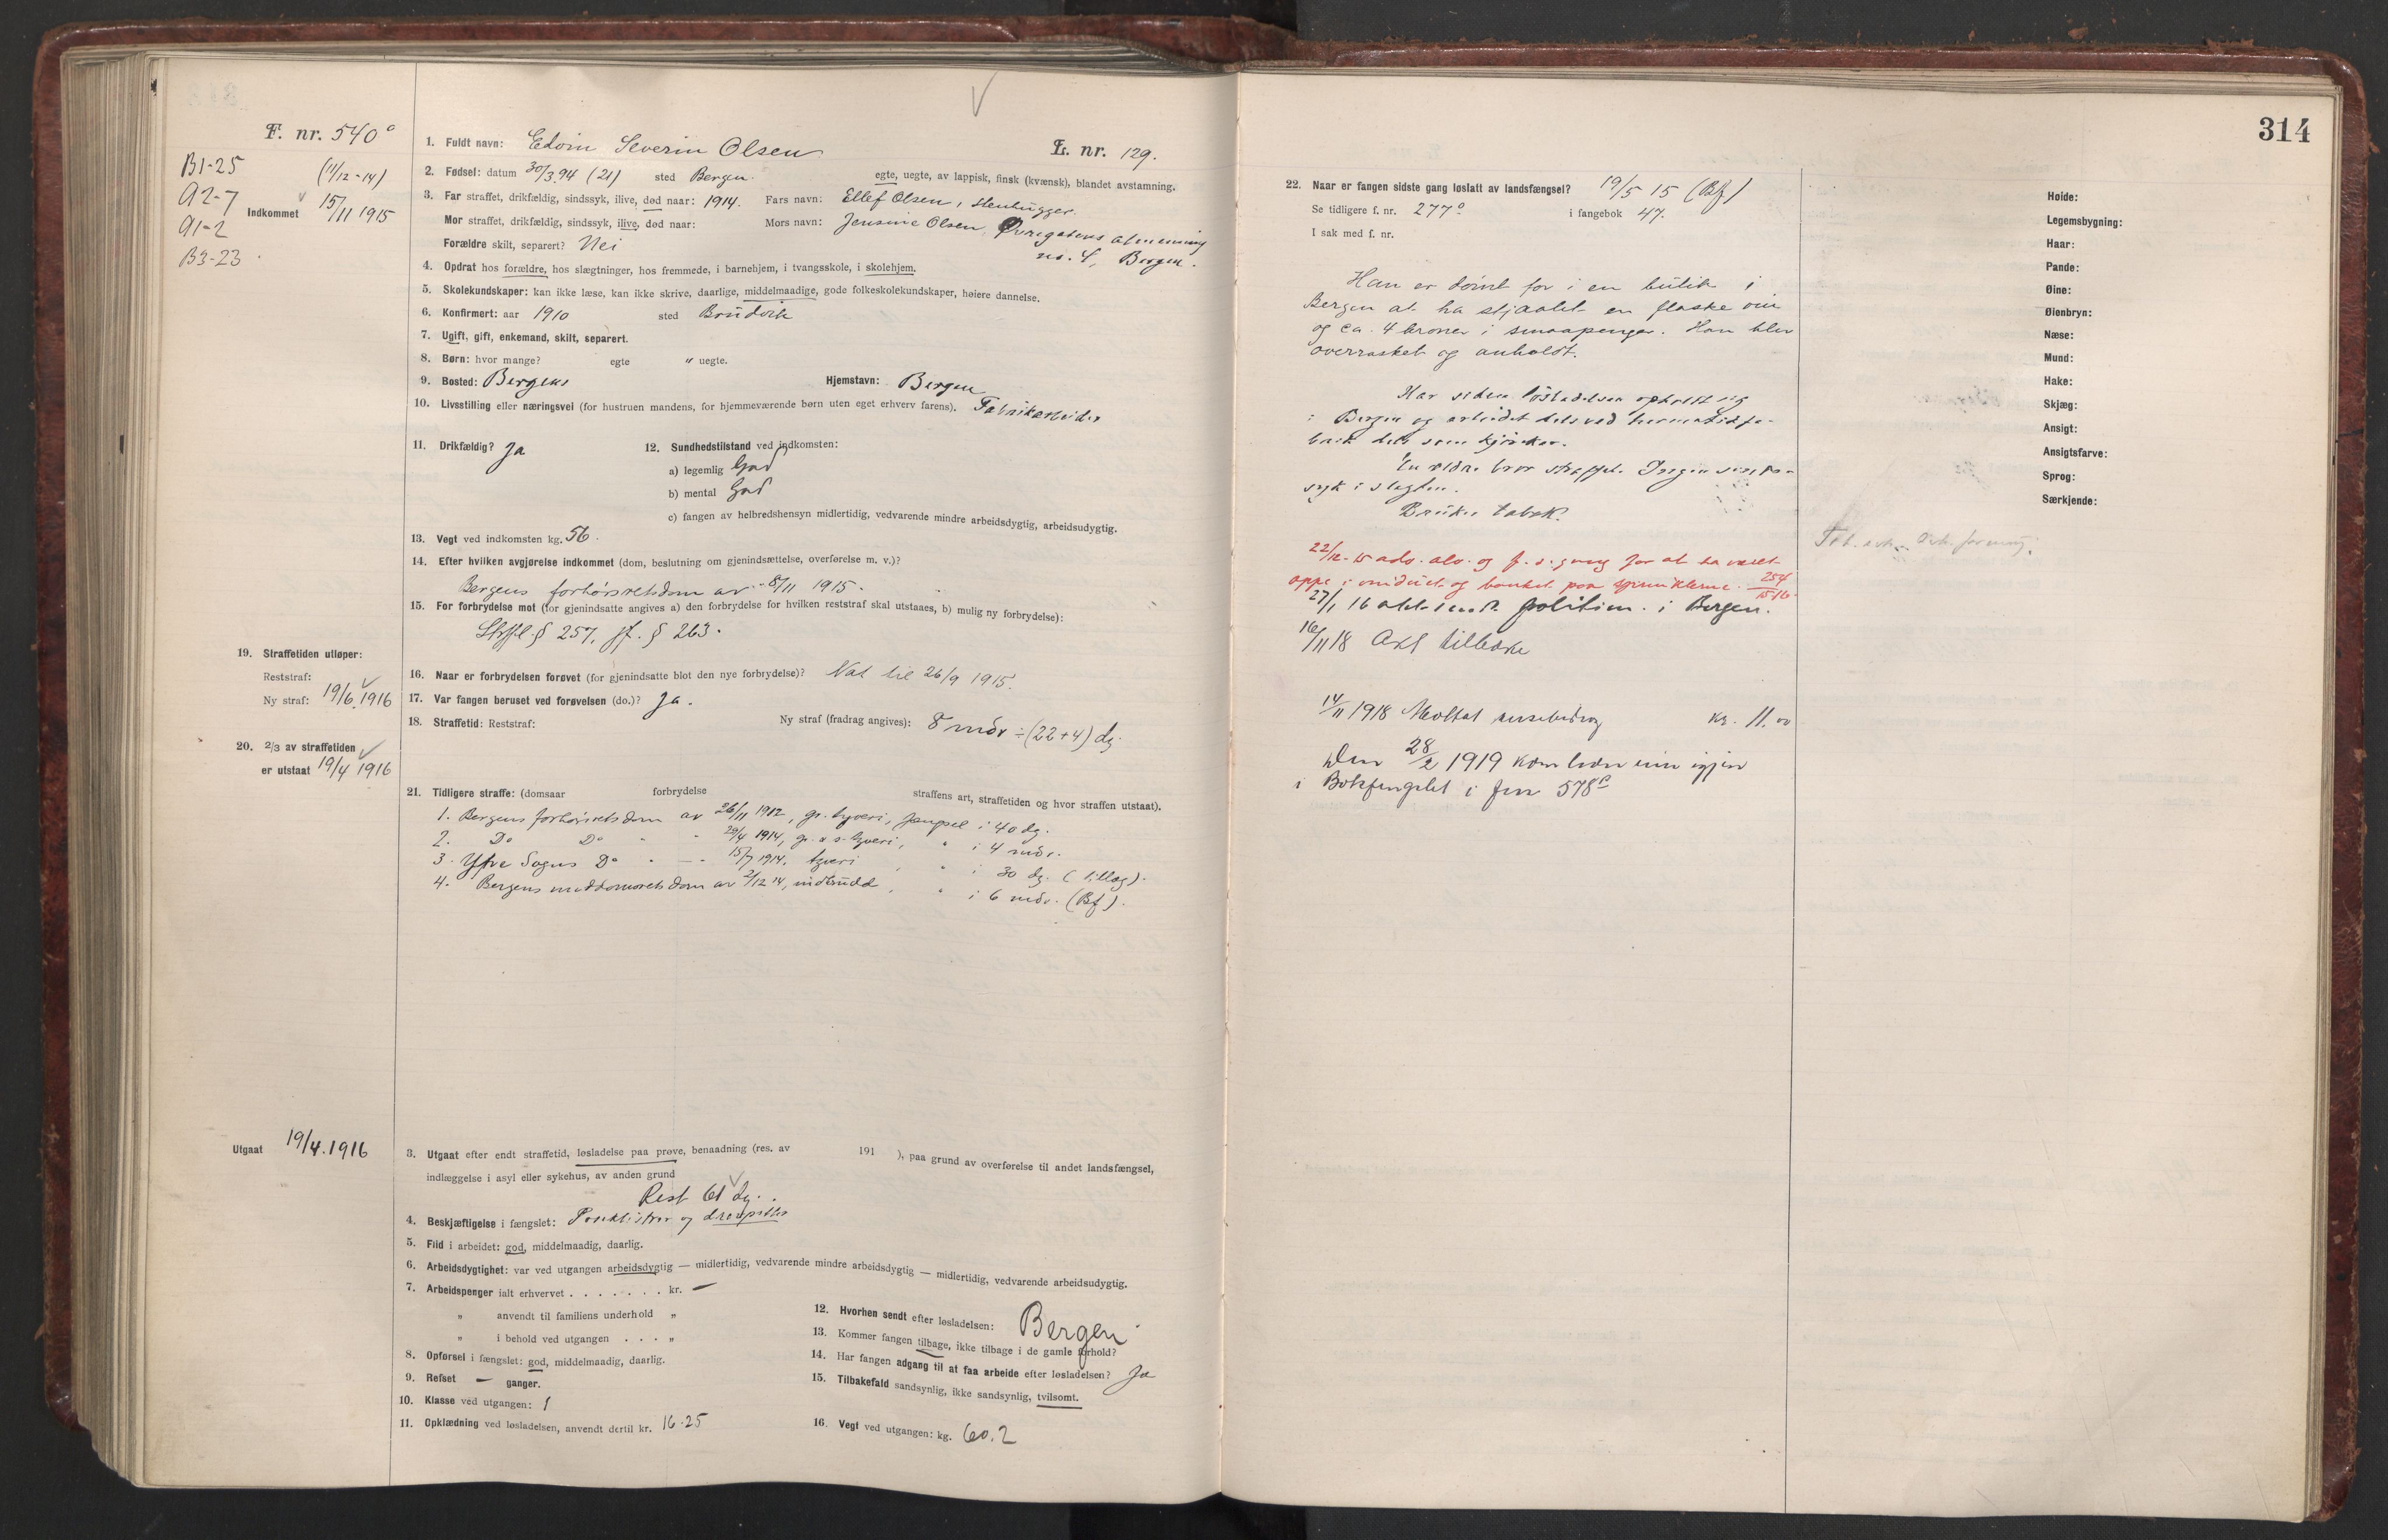 314
F. nr. 540 c
B1-25
(11/12-14)
A2-7
Indkommet 15/11 1915
A1-2
B3-23
1. Fuldt navn: Edvin Severin Olsen
L. nr. 129.
2. Fødsel: datum 30/3.94 (21) sted Bergen. egte, uegte, av lappisk, finsk (kvænsk), blandet avstamning.
3. Far straffet, drikfældig, sindssyk, ilive, død naar: 1914. Fars navn: Ellef Olsen, stenhugger.
Mor straffet, drikfældig, sindssyk, ilive, død naar: Mors navn: Jensine Olsen, Øvregatens almenning
Forældre skilt, separert? Nei no. 4, Bergen.
4. Opdrat hos forældre, hos slægtninger, hos fremmede, i barnehjem, i tvangsskole, i skolehjem.
5. Skolekundskaper: kan ikke læse, kan ikke skrive, daarlige, middelmaadige, gode folkeskolekundskaper, høiere dannelse.
6. Konfirmert: aar 1910 sted Bruvik
7. Ugift, gift, enkemand, skilt, separert.
8. Børn: hvor mange? egte " uegte.
9. Bosted: Bergens Hjemstavn: Bergen
10. Livsstilling eller næringsvei (for hustruen mandens, for hjemmeværende børn uten eget erhverv farens). Fabrikarbeider
11. Drikfældig? Ja
12. Sundhedstilstand ved indkomsten:
a) legemlig God
b) mental God
c) fangen av helbredshensyn midlertidig, vedvarende mindre arbeidsdygtig, arbeidsudygtig.
13. Vegt ved indkomsten kg. 56.
14. Efter hvilken avgjørelse indkommet (dom, beslutning om gjenindsættelse, overførelse m. v.)?
Bergens forhørsretsdom av 8/11 1915.
15. For forbrydelse mot (for gjenindsatte angives a) den forbrydelse for hvilken reststraf skal utstaaes, b) mulig ny forbrydelse):
Strfl. § 257, jf. § 263.
16. Naar er forbrydelsen forøvet (for gjenindsatte blot den nye forbrydelse)? Nat til 26/9 1915.
17. Var fangen beruset ved forøvelsen (do.)? Ja.
18. Straffetid: Reststraf: Ny straf (fradrag angives): 8 mdr ÷ (22+4) dg.
19. Straffetiden utløper:
Reststraf:
Ny straf: 19/6 1916
20. 2/3 av straffetiden
er utstaat 19/4 1916
21. Tidligere straffe: (domsaar forbrydelse straffens art, straffetiden og hvor straffen utstaat).
1. Bergens forhørsretsdom av 26/11 1912, gr. tyveri, fængsel i 40 dg.
2. Do Do - - 29/4 1914, gr. & s. tyveri, " i 4 mdr.
3. Ytre Sogns Do - - 15/7 1914. tyveri " i 30 dg. (tillæg).
4. Bergens meddomsretsdom av 2/12 14, indbrudd, " i 6 mdr. (Bf).
Utgaat 19/4.1916
3. Utgaat efter endt straffetid, løsladelse paa prøve, benaadning (res. av 191 ), paa grund av overførelse til andet landsfængsel,
indlæggelse i asyl eller sykehus, av anden grund
Rest 61 dg.
4. Beskjæftigelse i fængslet: og
5. Flid i arbeidet: god, middelmaadig, daarlig.
6. Arbeidsdygtighet: var ved utgangen arbeidsdygtig — midlertidig, vedvarende mindre arbeidsdygtig — midlertidig, vedvarende arbeidsudygtig.
7. Arbeidspenger ialt erhvervet . . . . . . . kr. —
" anvendt til familiens underhold "
" i behold ved utgangen . . . "
8. Opførsel i fængslet: god, middelmaadig, daarlig.
9. Refset — ganger.
10. Klasse ved utgangen: 1
11. Opklædning ved løsladelsen, anvendt dertil kr. 16.25
12. Hvorhen sendt efter løsladelsen: Bergen
13. Kommer fangen tilbage, ikke tilbage i de gamle forhold?
14. Har fangen adgang til at faa arbeide efter løsladelsen? Ja
15. Tilbakefald sandsynlig, ikke sandsynlig, tvilsomt.
16. Vegt ved utgangen: kg. 60.2
22. Naar er fangen sidste gang løslatt av landsfængsel? 19/5 15 (Bf)
Se tidligere f. nr. 277 c i fangebok 47.
I sak med f. nr.
Han er dømt for i en butik i
Bergen at ha stjaalet en flaske vin
og ca. 4 kroner i smaapenger. Han blev
overrasket og anholdt.
Har siden løsladelsen opholdt sig
i Bergen og arbeidet dels ved hermetikfa-
brik dels som kjørekar.
En ældre bror straffet. Ingen sinds-
syk i slegten.
Bruker tabak.
22/12-15 adv. alv. og f. s. gang for at ha været
oppe i vinduet og banket paa sprinklerne. 254/15-16
27/1 16 politim. i Bergen.
16/11 18 Akt tilbake
14/11 1918 Mottat reisebidrag kr. 11.00
Den 28/2 1919 kom han inn igjen
i Botsfengslet i fnr 578 c
Høide:
Legemsbygning:
Haar:
Pande:
Øine:
Øienbryn:
Næse:
Mund:
Hake:
Skjæg:
Ansigt:
Ansigtsfarve:
Sprog:
Særkjende: